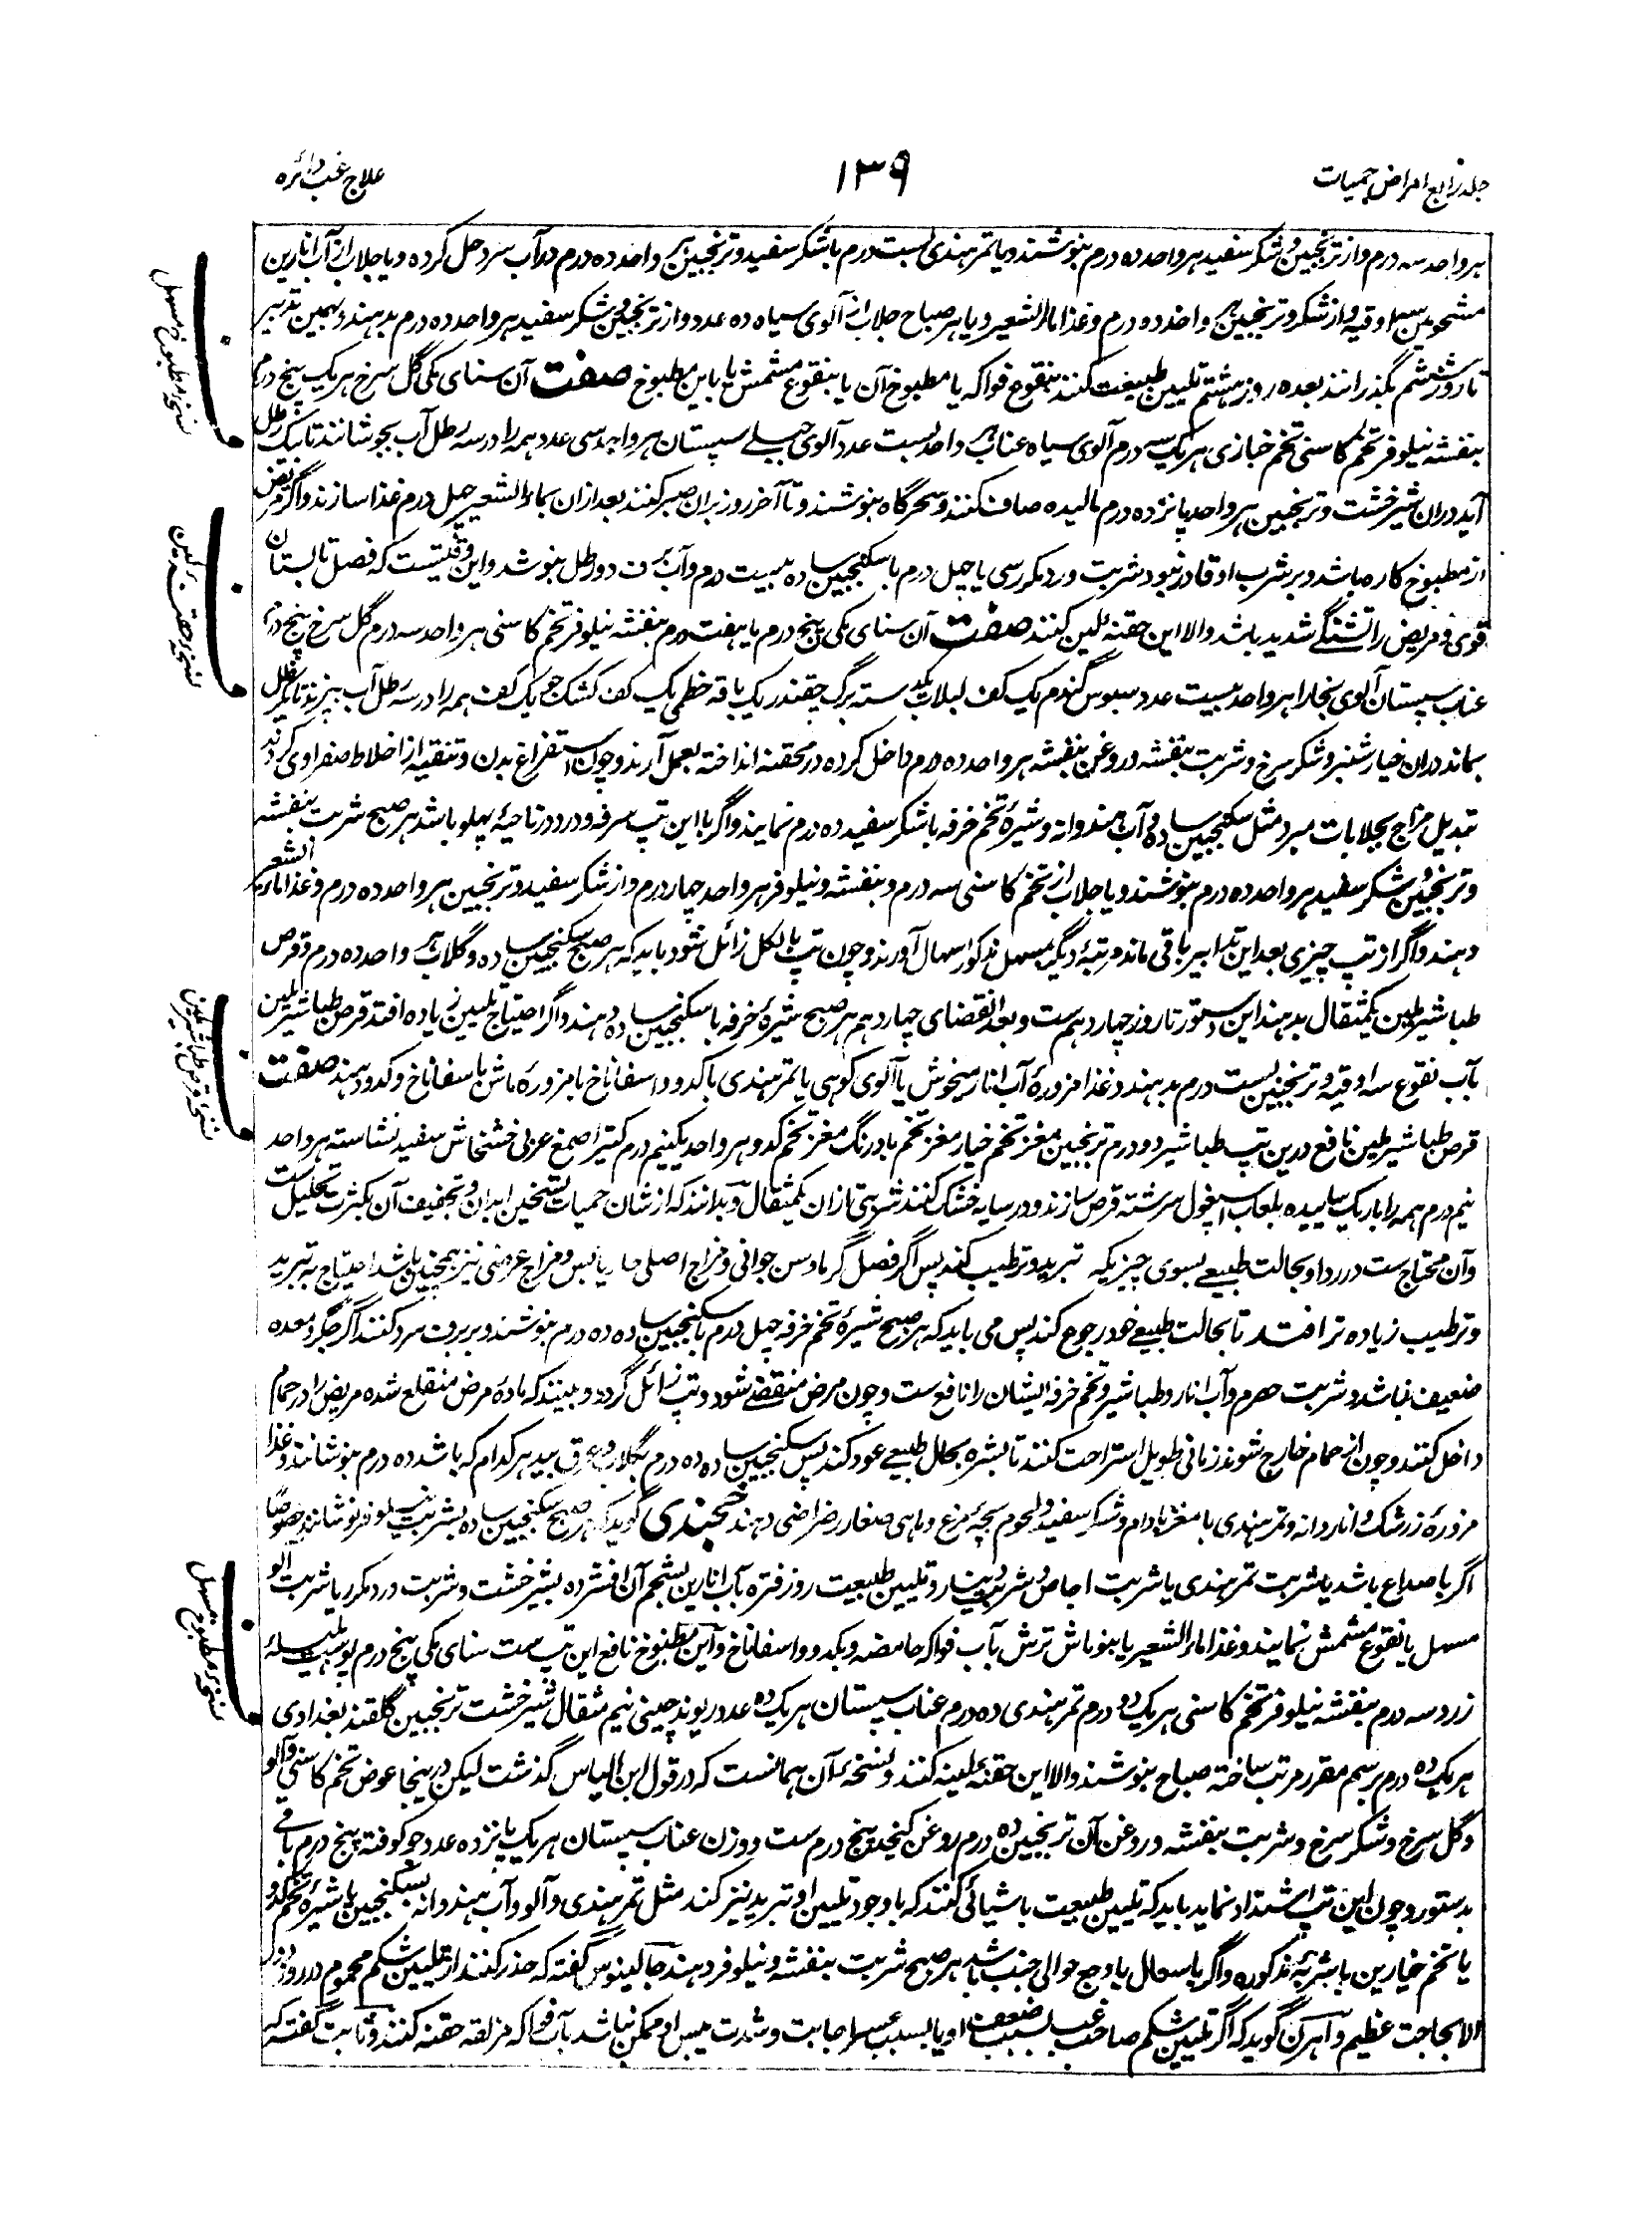 جلد رابع امراض حمیات
۱۳۹
علاج غب دائره
هر واحد سه درم و از ترنجبین و شکر سفید هر واحد ده درم بنوشند و یا تمر هندی بست درم با شکر سفید و ترنجبین هر واحد ده درم در آب سرد حل کرده و یا جلاب از آب انارین
مشحومین سه اوقیه و از شکر و ترنجبین هر واحد ده درم و غذا ماءالشعیر و یا هر صباح جلاب از آلوی سیاه ده عدد و از ترنجبین و شکر سفید هر واحد ده درم بدهند و بهمین تدبیر
تا روز ششم بگذرانند بعده روز هشتم تلیین طبیعت کنند بنقوع فواکه یا مطبوخ آن یا بنقوع مشمش یا باین مطبوخ صفت آن سنای مکی گل سرخ هر یک پنج درم
بنفشه نیلوفر تخم کاسنی تخم خبازی هر یک سه درم آلوی سیاه عناب هر واحد بست عدد آلوی جبلے سپستان هر واحد سی عدد همه را در سه رطل آب بجوشانند تا یک رطل
آید دران شیرخشت و ترنجبین هر واحد پانزده درم مالیده صاف کنند و سحرگاه بنوشند و تا آخر روز بران صبر کنند بعد ازان بماءالشعیر چهل درم غذا سازند و اگر مریض
از مطبوخ کاره باشد و بر شرب او قادر نبود شربت ورد مکرر سی یا چهل درم با سکنجبین ساده بیست درم و آب برف دو رطل بنوشد و این وقتیست که فصل تابستان
قوی و مریض را تشنگے شدید باشد والا این حقنه لین کنند صفت آن سنای مکی پنج درم یا هفت درم بنفشه نیلوفر تخم کاسنی هر واحد سه درم گل سرخ پنج درم
عناب سپستان آلوی بخارا هر واحد بیست عدد سبوس گندم یک کف لبلاب یکدسته برگ چقندر یک باقه خطمی یک کف کشک جو یک کف همه را در سه رطل آب بپزند تا یک رطل
بماند دران خیارشنبر و شکر سرخ و شربت بنفشه و روغن بنفشه هر واحد ده درم داخل کرده در محقنه انداخته بعمل آرند و چون استفراغ بدن و تنقیه از اخلاط صفراوی کردند
تبدیل مزاج بجلابات مبرد مثل سکنجبین ساده و آب هندوانه و شیرهٔ تخم خرفه با شکر سفید ده درم نمایند و اگر با این تپ سرفه و درد در ناحیهٔ پهلو باشد هر صبح شربت بنفشه
و ترنجبین و شکر سفید هر واحد ده درم بنوشند و یا جلاب از تخم کاسنی سه درم و بنفشه و نیلوفر هر واحد چهار درم و از شکر سفید و ترنجبین هر واحد ده درم و غذا ماءالشعیر
دهند و اگر از تپ چیزی بعد این تدابیر باقی ماند مرتبهٔ دیگر بمسهل مذکور اسهال آورند و چون تپ بالکل زائل شود باید که هر صبح سکنجبین ساده و گلاب هر واحد ده درم و قرص
طباشیر ملین یکمثقال بدهند این دستور تا روز چهاردهم ست و بعد انقضای چهاردهم هر صبح شیرهٔ خرفه با سکنجبین ساده دهند و اگر احتیاج تلیین زیاده افتد قرص طباشیر ملین
بآب نقوع سه اوقیه و ترنجبین بست درم بدهند و غذا مزورهٔ آب انار میخوش یا آلوی کوهی یا تمر هندی با کدو و اسفاناخ یا مزورهٔ ماش با سفاناخ و کدو دهند صفت
قرص طباشیر ملین نافع درین تپ طباشیر دو درم ترنجبین مغز تخم خیار مغز تخم بادرنگ مغز تخم کدو هر واحد یکنیم درم کتیرا صمغ عربی خشخاش سفید نشاسته هر واحد
نیم درم همه را باریک ساییده بلعاب اسپغول سرشته قرص سازند و در سایه خشک کنند شربتی ازان یکمثقال و بدانند که از شان حمیات تسخین ابدان و تجفیف آن بکثرت تحلیل ست
وآن محتاج ست در رد او بحالت طبیعے بسوی چیزیکه تبرید و ترطیب کند پس اگر فصل گرما و سن جوانی و مزاج اصلی حار یابس و مزاج عرضی نیز همچنین باشد احتیاج به تبرید
و ترطیب زیاده تر افتد تا بحالت طبیعے خود رجوع کند پس می باید که هر صبح شیرهٔ تخم خرفه چهل درم با سکنجبین ساده ده درم بنوشند و ببرف سرد کنند اگر جگر و معده
ضعیف نباشد و شربت حصرم و آب انار و طباشیر و تخم خرفه ایشان را نافع ست و چون مرض منقضے شود و تپ زائل گردد و ببینند که مادهٔ مرض منقلع شده مریض را در حمام
داخل کنند و چون از حمام خارج شوند زمانی طویل استراحت کنند تا بشره بحال طبیعے عود کند پس سکنجبین ساده ده درم بگلاب و عرق بید هر کدام که باشد ده درم بنوشانند و غذا
مزورهٔ زرشک و انار دانه و تمر هندی با مغز بادام و شکر سفید و لحوم بچهٔ مرغ و ماهی صغار رضراضی دهند خجندی گوید که هر صبح سکنجبین ساده بشربت نیلوفر بنوشانند خصوصًا
اگر با صداع باشد یا شربت تمر هندی یا شربت اجاص و شربت دینار و تلیین طبیعت روز فتره بآب انارین بشحم آن افشرده بشیرخشت و شربت ورد مکرر یا شربت آلو
مسهل یا نقوع مشمش نمایند و غذا ماءالشعیر یا بنو ماش ترش بآب فواکه حامضه و بکدو و اسفاناخ و این مطبوخ نافع این تپ ست سنای مکی پنج درم پوست هلیلهٔ
زرد سه درم بنفشه نیلوفر تخم کاسنی هر یک دو درم تمر هندی ده درم عناب سپستان هر یک ده عدد ریوند چینی نیم مثقال شیرخشت ترنجبین گلقند بغدادی
هر یک ده درم برسم مقرر مرتب ساخته صباح بنوشند والا این حقنه ملینه کنند و نسخهٔ آن همانست که در قول ابن الیاس گذشت لیکن درینجا عوض تخم کاسنی و آلو
و گل سرخ و شکر سرخ و شربت بنفشه و روغن آن ترنجبین ده درم روغن کنجد پنج درم ست و وزن عناب سپستان هر یک پانزده عدد جو کوفته پنج درم باقی
بدستور و چون این تپ اشتداد نماید باید که تلیین طبیعت باشیائی کنند که با وجود تلیین او تبرید نیز کند مثل تمر هندی و آلو و آب هندوانه بسکنجبین یا شیرهٔ تخم کدو
یا تخم خیارین با شربهٔ مذکوره و اگر با سعال یا وجع حوالی جنب باشد هر صبح شربت بنفشه و نیلوفر دهند جالینوس گفته که حذر کنند از تلیین شکم محموم در روز دور
الا بحاجت عظیم و آهرن گوید که اگر تلیین شکم صاحب غب بسبب ضعف او یا بسبب عسر اجابت و شدت یبس او ممکن نباشد بآب فواکه مزلقه حقنه کنند و ثابت گفته که
نسخهٔ مطبوخ مسهل
نسخهٔ حقنه لین
نسخهٔ قرص طباشیر ملین
نسخهٔ مطبوخ مسهل